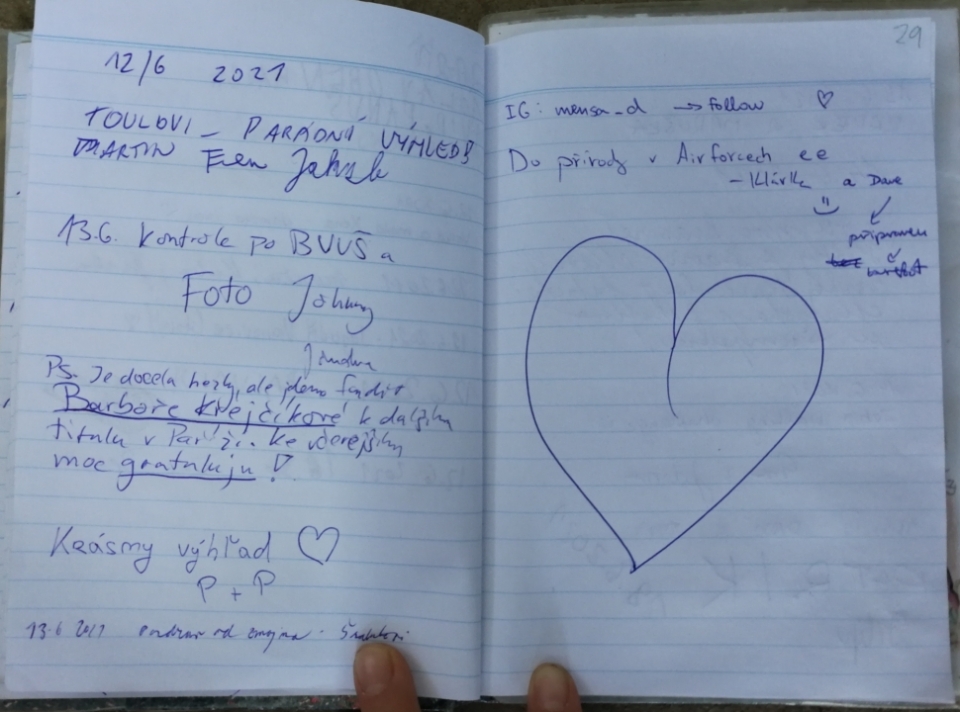 12/6 2021
TOULOVI - PARÁDNÍ VÝHLEDY
MARTIN Jakub
13.6. Kontrola po BVVŠ a
Foto Johny
Jandura
PS. Je docela hezky, ale jdeme fandit
Barboře Krejčíkové k dalšímu
titulu v Paříži. Ke včerejšímu
moc gratuluju!
Krásny výhľad ♡
P + P
13.6 2021 od
29
IG: mensa_d → follow ♡
Do přírody v Airforcech ee
- Klárka a Dave
připraveni